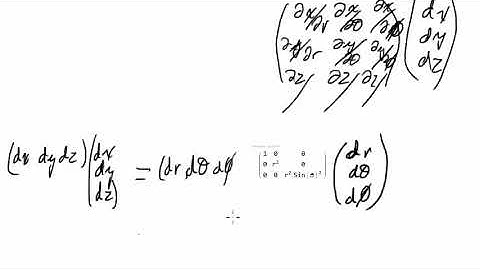 ∂x/∂r ∂x/∂θ ∂x/∂φ dx
∂y/∂r ∂y/∂θ ∂y/∂φ dy
∂z/ ∂z/ ∂z/ dz
(dx dy dz) (dx dy dz) = (dr dθ dφ) (1 0 0
0 r² 0
0 0 r² Sin[θ]²) (dr dθ dφ)